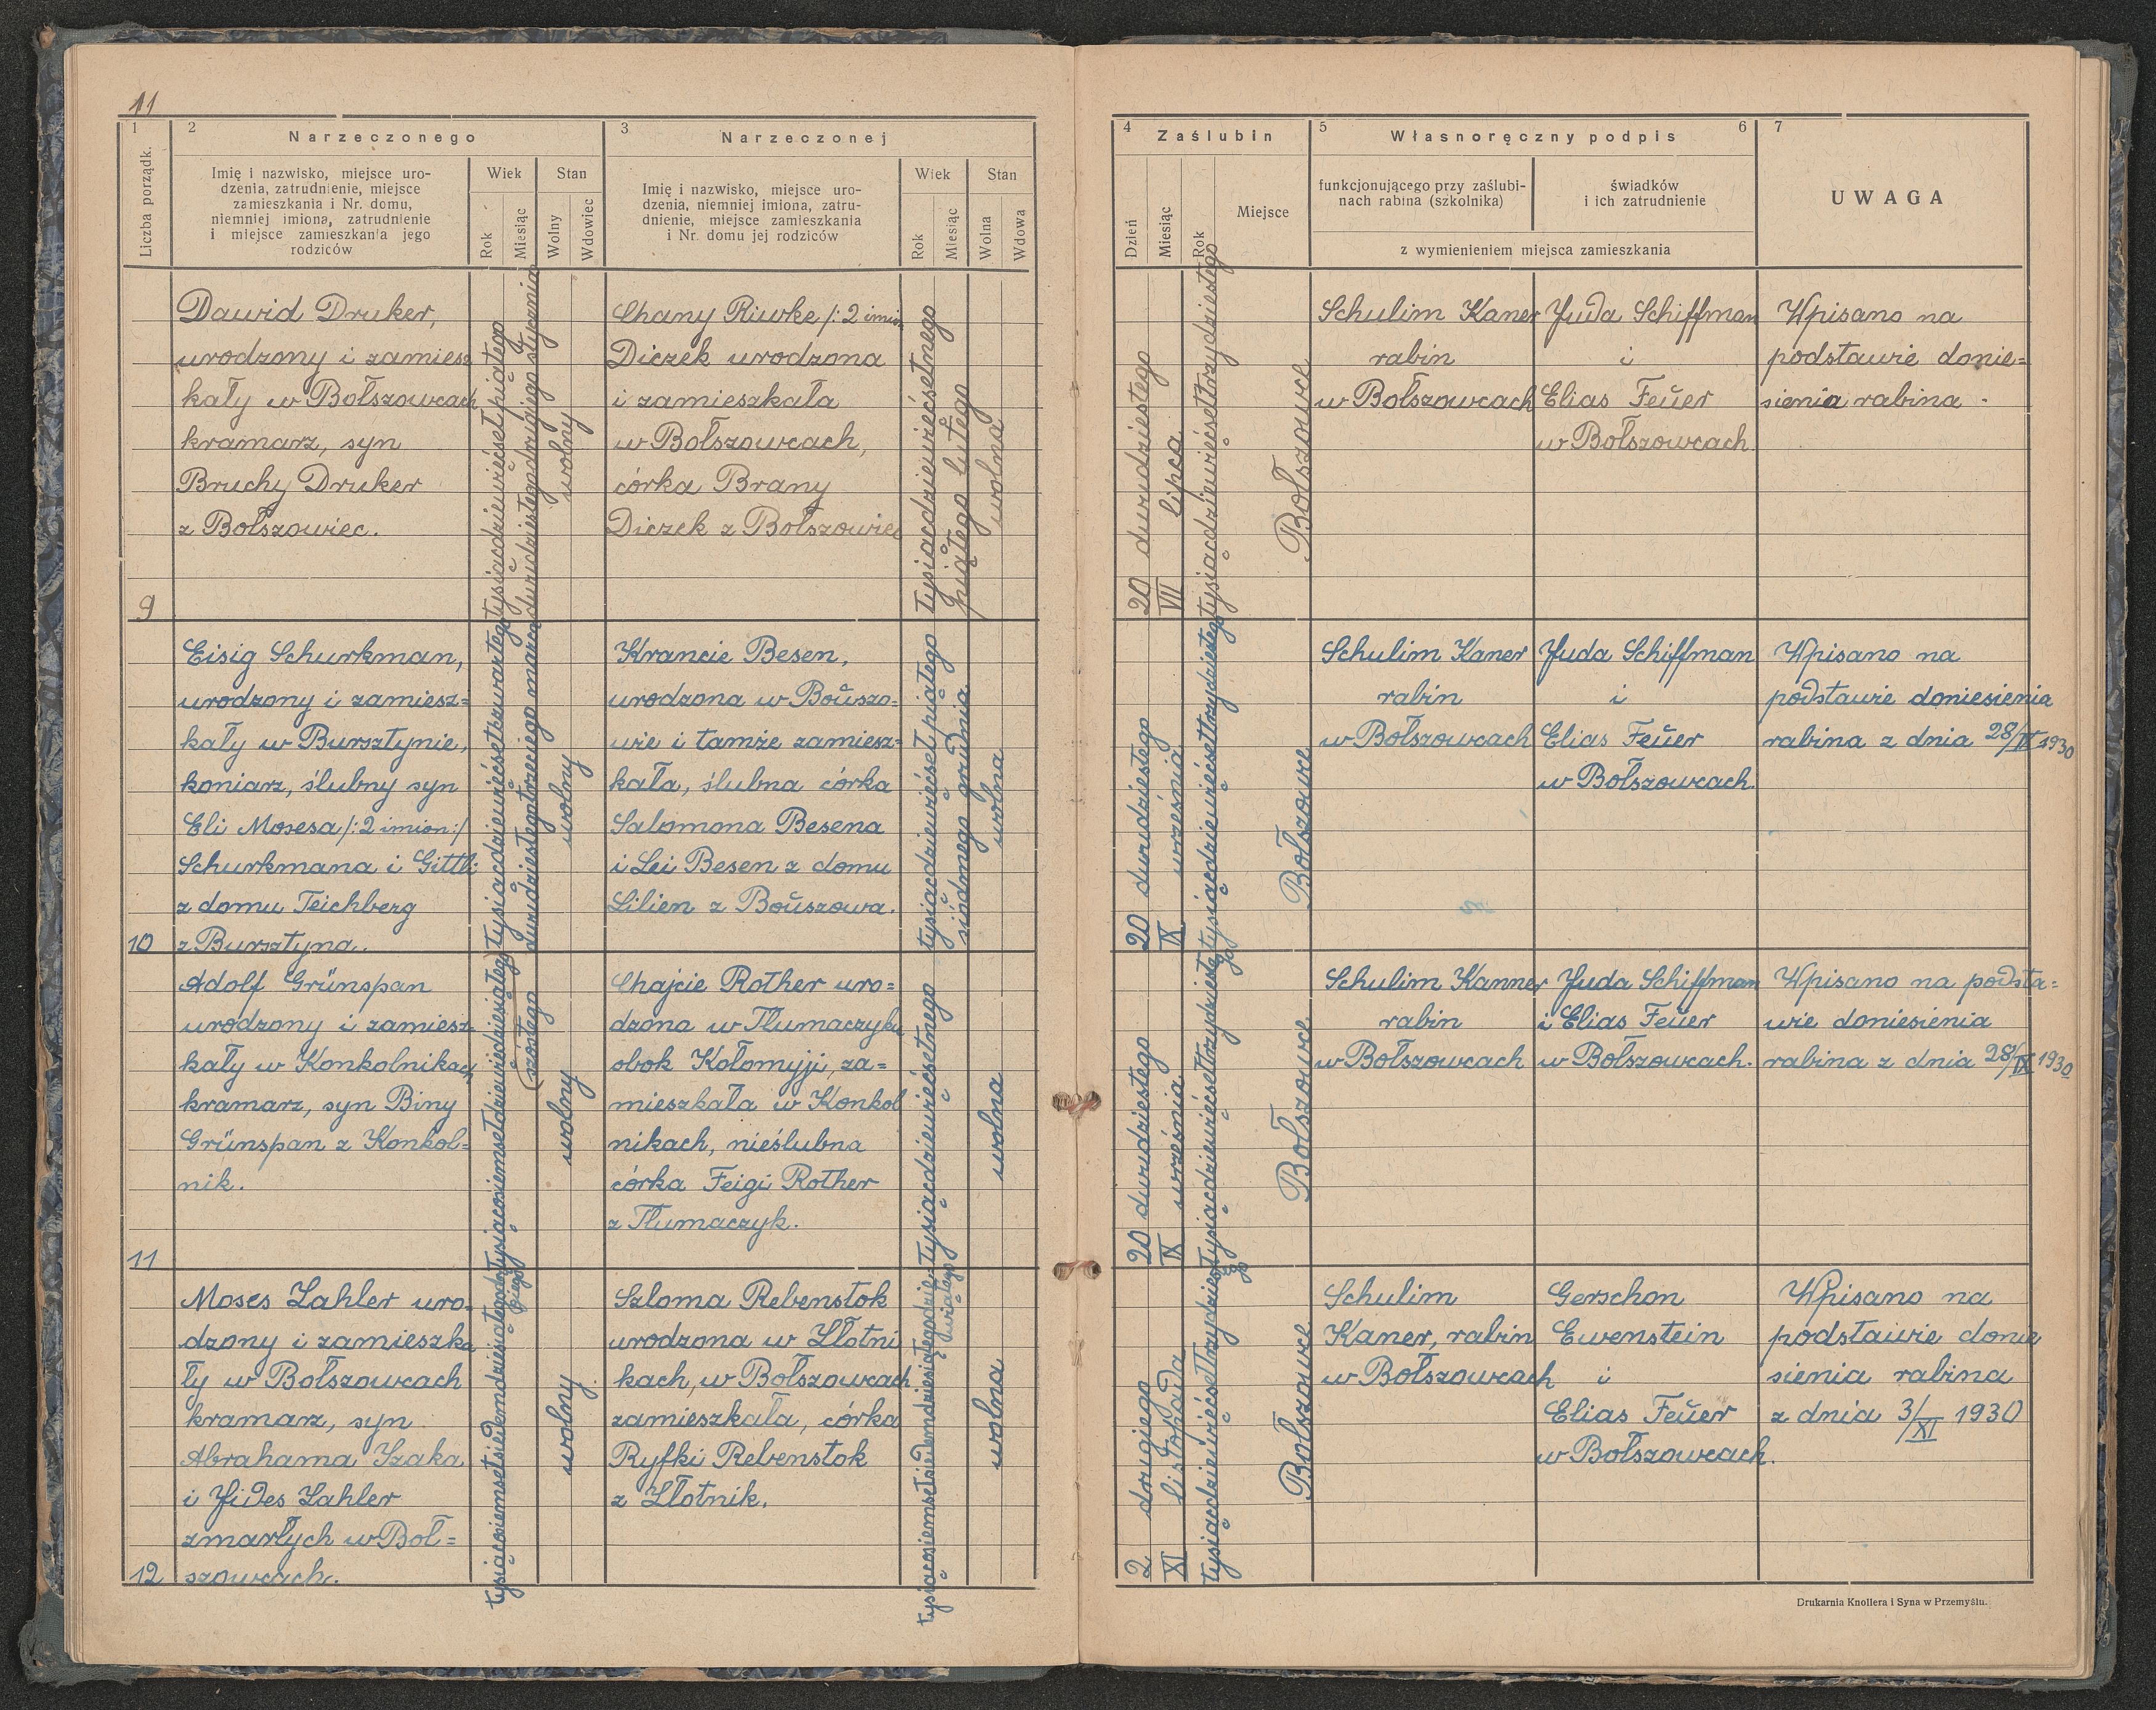 11
1
2
Narzeczonego
3
Narzeczonej
Liczba porządk.
Imię i nazwisko, miejsce uro-
dzenia, zatrudnienie, miejsce
zamieszkania i Nr. domu,
niemniej imiona, zatrudnienie
i miejsce zamieszkania jego
rodziców
Wiek
Rok
Miesiąc
Stan
Wolny
Wdowiec
Imię i nazwisko, miejsce uro-
dzenia, niemniej imiona, zatru-
dnienie, miejsce zamieszkania
i Nr. domu jej rodziców
Wiek
Rok
Miesiąc
Stan
Wolna
Wdowa
4
Zaślubin
5
Własnoręczny podpis
6
7
Dzień
Miesiąc
Rok
Miejsce
funkcjonującego przy zaślubi-
nach rabina (szkolnika)
świadków
i ich zatrudnienie
z wymienieniem miejsca zamieszkania
UWAGA
9
Dawid Druker,
urodzony i zamiesz
kały w Bołszowcach
kramarz, syn
Bruchy Druker
z Bołszowiec.
tysiącdziewięćset piątego
dwudziestegodrugiego stycznia
wolny
Chany Riwke /: 2 imion
Diczek urodzona
i zamieszkała
w Bołszowcach,
córka Brany
Diczek z Bołszowiec
tysiącdziewięćsetnego
piątego lutego
wolna
20 dwudziestego
VII lipca
tysiącdziewięćsettrzydziestego
Bołszowce
Schulim Kaner
rabin
w Bołszowcach
Juda Schiffman
i
Elias Feuer
w Bołszowcach.
Wpisano na
podstawie donie=
sienia rabina.
10
Eisig Schurkman,
urodzony i zamiesz=
kały w Bursztynie,
koniarz, ślubny syn
Eli Mosesa /: 2 imion:/
Schurkmana i Gittli
z domu Teichberg
z Bursztyna.
tysiącdziewięćsetczwartego
dwudziestegotrzeciego marca
wolny
Krancie Besen,
urodzona w Bouszo=
wie i tamże zamiesz=
kała, ślubna córka
Salomona Besena
i Lei Besen z domu
Lilien z Bouszowa.
tysiącdziewięćset piątego
siódmego grudnia.
wolna
20 dwudziestego
IX września
tysiącdziewięćsettrzydziestego
Bołszowce
Schulim Kaner
rabin
w Bołszowcach
Juda Schiffman
i
Elias Feuer
w Bołszowcach.
Wpisano na
podstawie doniesienia
rabina z dnia 28/IX 1930
11
Adolf Grünspan
urodzony i zamiesz
kały w Konkolnikach
kramarz, syn Biny
Grünspan z Konkol=
nik.
tysiącosiemsetdziewięćdziesiątego
szóstego
wolny
Chajcie Rother uro=
dzona w Tłumaczyku
obok Kołomyji, za=
mieszkała w Konkol
nikach, nieślubna
córka Feigi Rother
z Tłumaczyk.
tysiącdziewięćsetnego
wolna
20 dwudziestego
IX września
tysiącdziewięćsettrzydzieste
go
Bołszowce
Schulim Kanner
rabin
w Bołszowcach
Juda Schiffman
i Elias Feuer
w Bołszowcach.
Wpisano na podsta=
wie doniesienia
rabina z dnia 28/IX 1930
12
Moses Lahler uro=
dzony i zamieszka
ły w Bołszowcach
kramarz, syn
Abrahama Izaka
i Jides Lahler
zmarłych w Boł=
szowcach.
wolny
Szloma Rebenstok
urodzona w Złotni
kach, w Bołszowcach
zamieszkała, córka
Ryfki Rebenstok
z Złotnik.
tysiącosiemsetsiedmdziesiątegodzie-
wiątego
wolna
2 drugiego
XI listopada
tysiącdziewięćsettrzydzieste
go
Bołszowce
Schulim
Kaner, rabin
w Bołszowcach
Gerschon
Ewenstein
i
Elias Feuer
w Bołszowcach.
Wpisano na
podstawie donie
sienia rabina
z dnia 3/XI 1930
Drukarnia Knollera i Syna w Przemyślu.